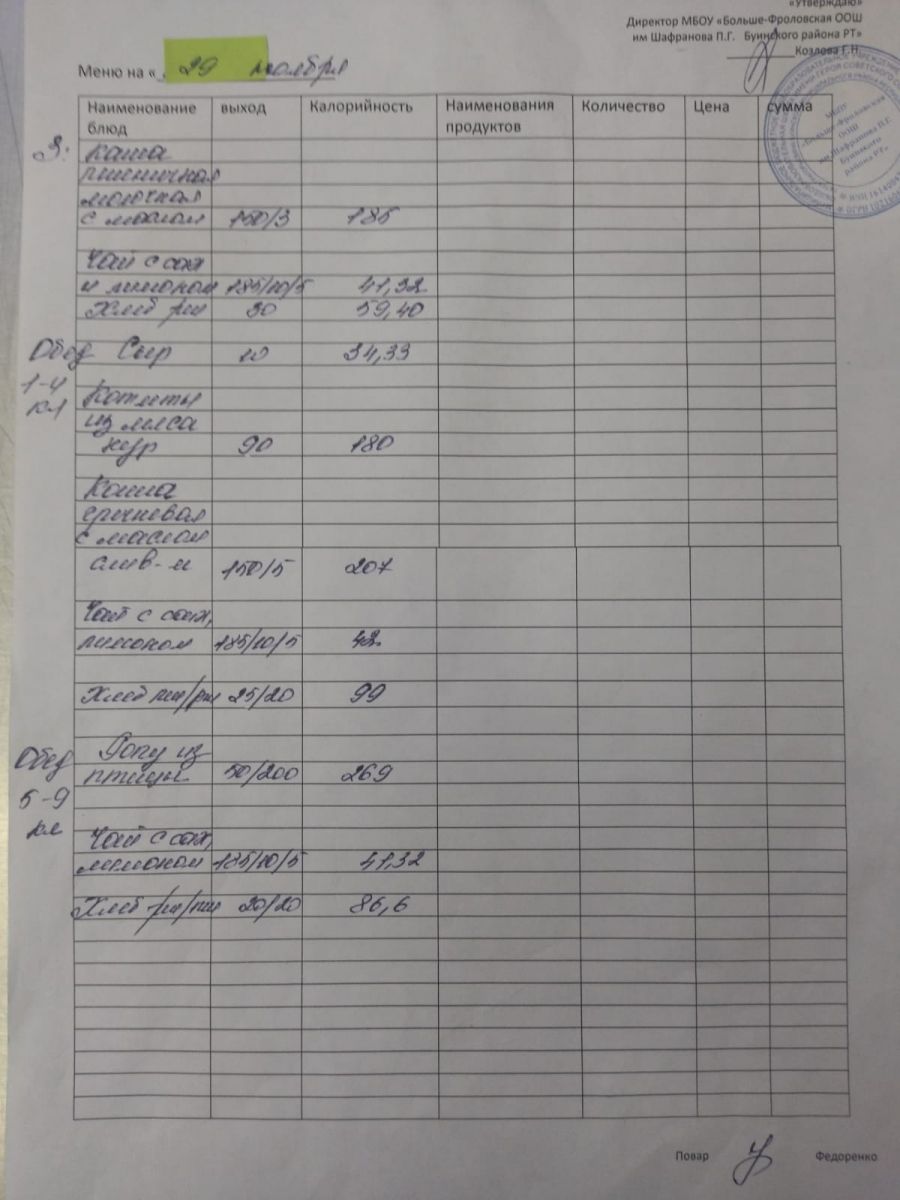 «Утверждаю»
Директор МБОУ «Больше-Фроловская ООШ
им Шафранова П.Г. Буинского района РТ»
Козлова Г.Н.
Меню на « 29 ноября
Наименование блюд выход Калорийность Наименования продуктов Количество Цена сумма
МБОУ
«Больше-Фроловская
ООШ
им.Шафранова П.Г.
Буинского
района РТ»
З: Каша
пшеничная
молочная
с маслом 150/3 185
Чай с сах
и лимоном 185/10/5 41,32
Хлеб рж 30 59,40
Обед Сыр 10 34,33
1-4
кл Котлеты
из мяса
кур 90 180
Каша
гречневая
с маслом
слив-м 150/5 207
Чай с сах,
лимоном 185/10/5 42
Хлеб пш/рж 25/20 99
Обед Рагу из
птицы 50/200 269
5-9
кл Чай с сах,
лимоном 185/10/5 41,32
Хлеб рж/пш 20/20 86,6
Повар Федоренко